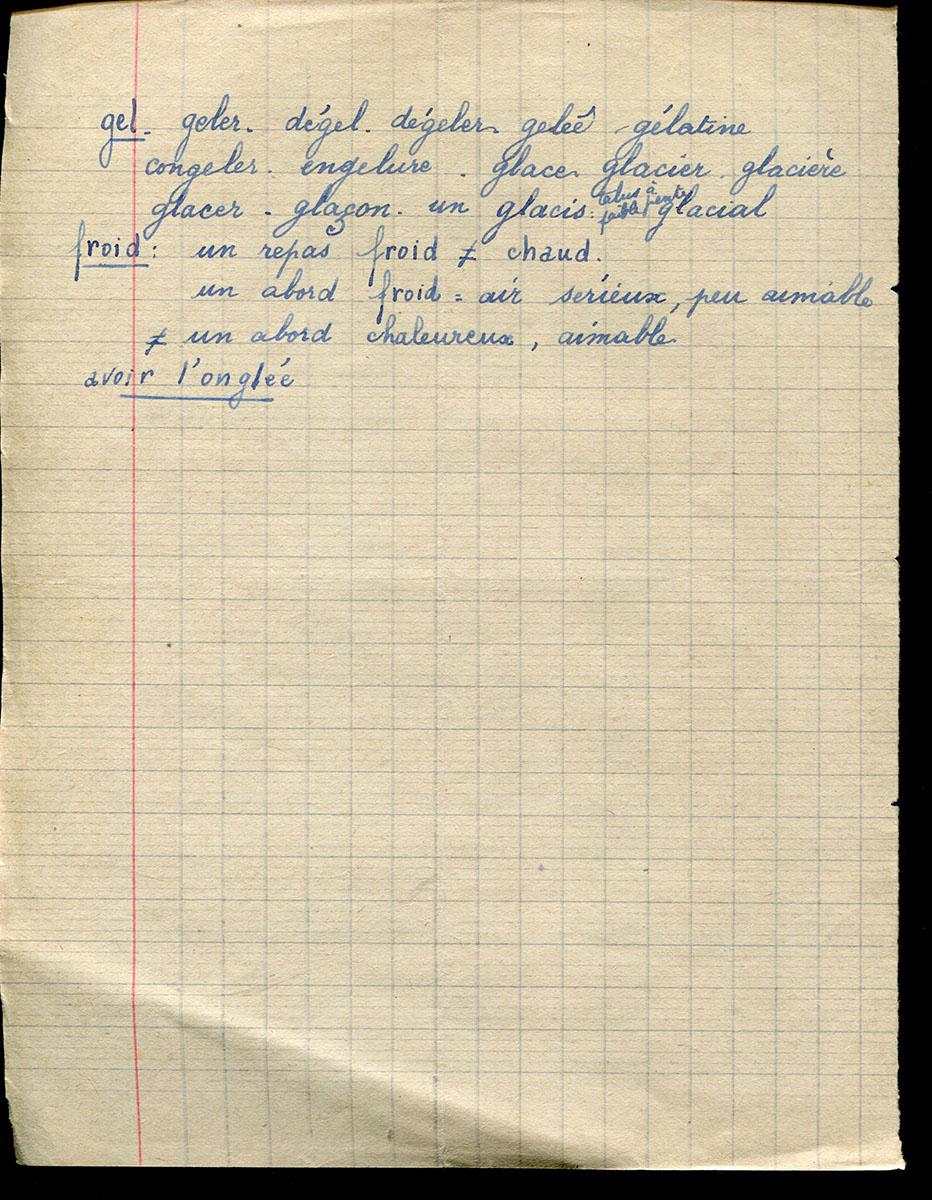 gel. geler. dégel. dégeler. gelée - gélatine
congeler. engelure. glace. glacier. glacière
glacer. glaçon. un glacis: talus à faible pente glacial
froid: un repas froid ≠ chaud.
un abord froid = air sérieux, peu aimable
≠ un abord chaleureux, aimable
avoir l'onglée